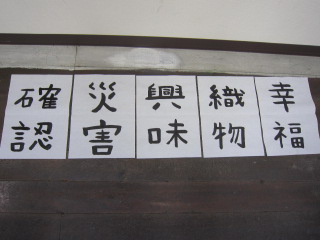 幸福
織物
興味
災害
確認